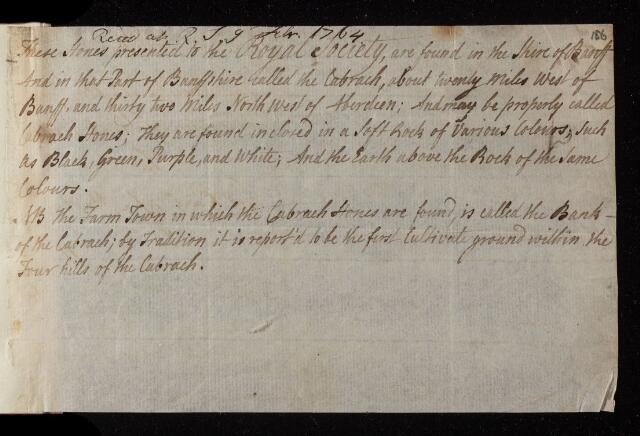 Read at R. S. 9 Febr. 1764
186
These Stones presented to the Royal Society, are found in the Shire of Banff
And in that Part of Banffshire called the Cabrach, about twenty Miles West of
Banff, and thirty two Miles North West of Aberdeen; And may be properly called
Cabrach Stones; They are found inclosed in a Soft Rock of Various Colours, Such
as Black, Green, Purple, and White; And the Earth above the Rock of the Same
Colours.
NB The Farm Town in which the Cabrach Stones are found, is called the Bank-
of the Cabrach; by Tradition it is report'd to be the first Cultivate ground within the
Four hills of the Cabrach.